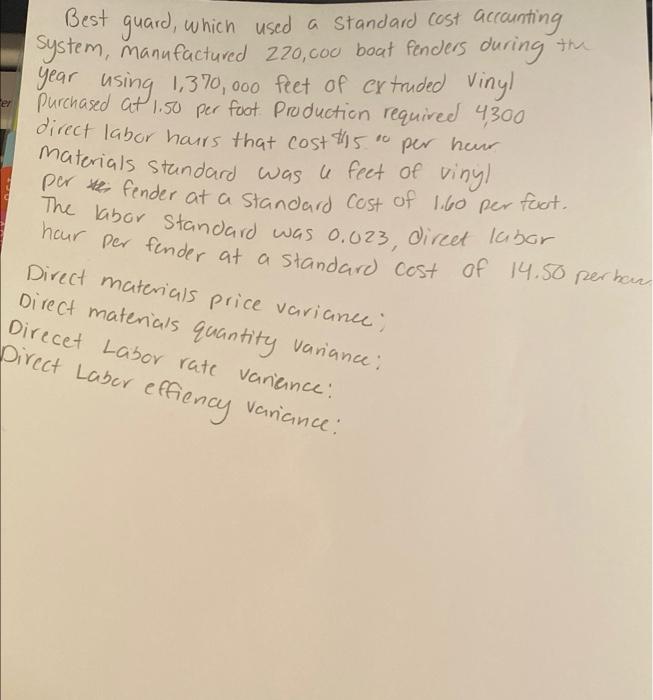 Best guard, which used a standard cost accounting
system, manufactured 220,000 boat fenders during the
year using 1,370,000 feet of extruded vinyl
purchased at 1.50 per foot. Production required 4,300
direct labor hours that cost $15.00 per hour
materials standard was 6 feet of vinyl
per fender at a standard cost of 1.60 per foot.
The labor standard was 0.023, direct labor
hour per fender at a standard cost of 14.50 per hour
Direct materials price variance;
Direct materials quantity variance:
Direcet Labor rate variance:
Direct Labor effiency variance: